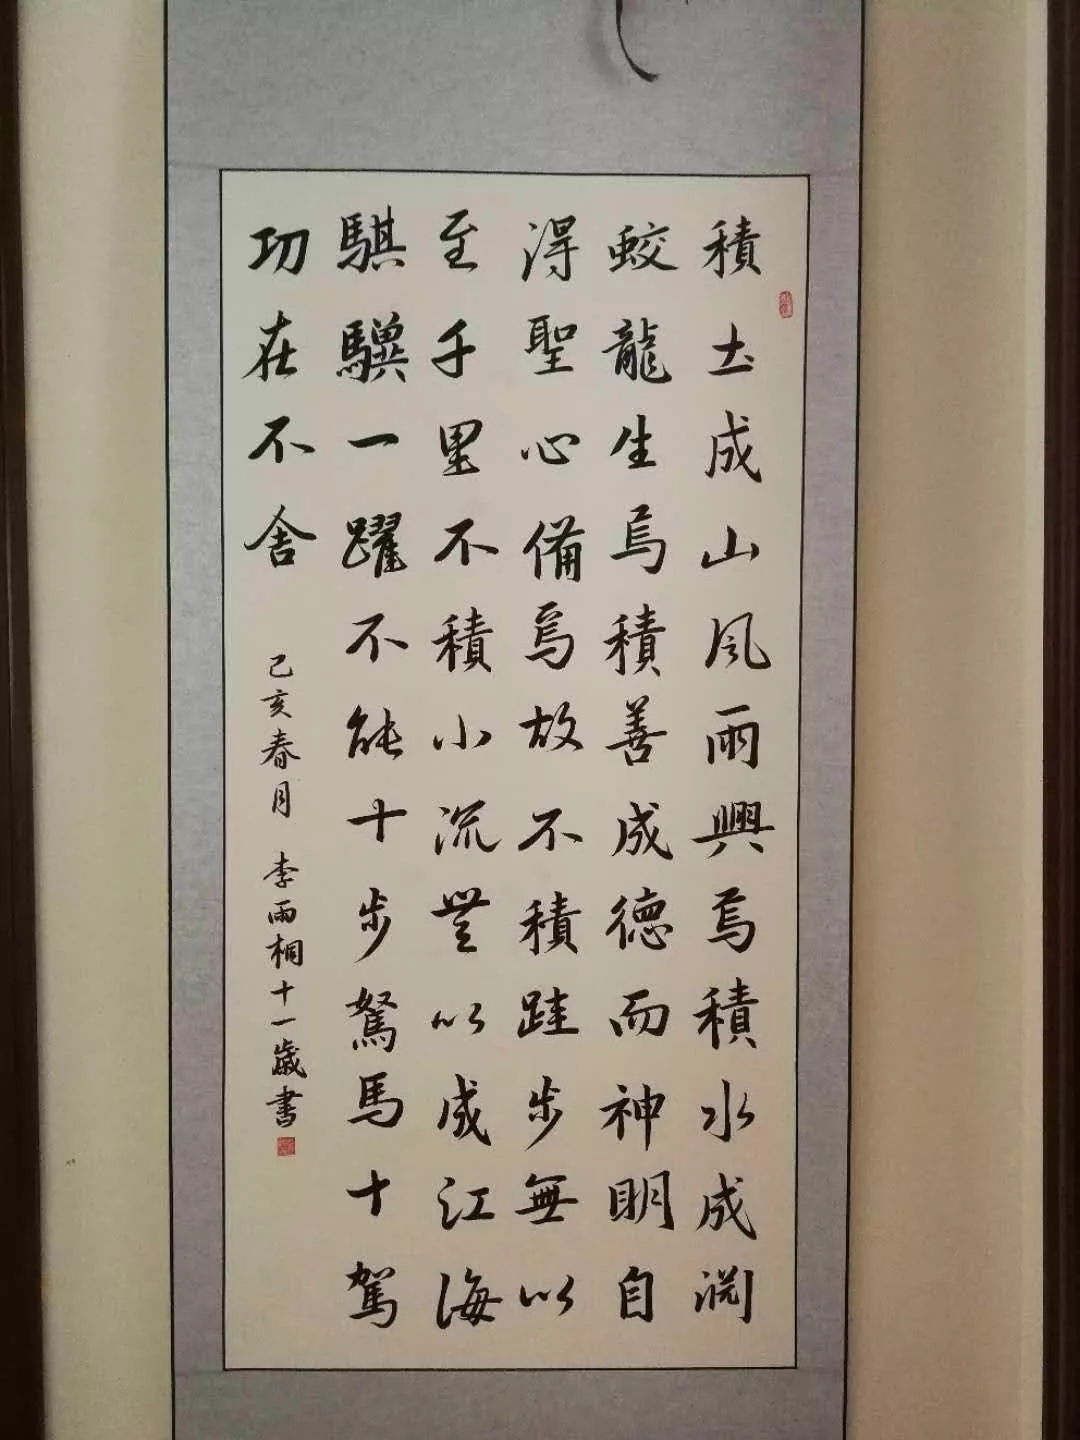 積土成山風雨興焉積水成渊
蛟龍生焉積善成德而神明自
得聖心備焉故不積跬步無以
至千里不積小流無以成江海
騏驥一躍不能十步駑馬十駕
功在不舍
己亥春月 李雨桐十一歲書